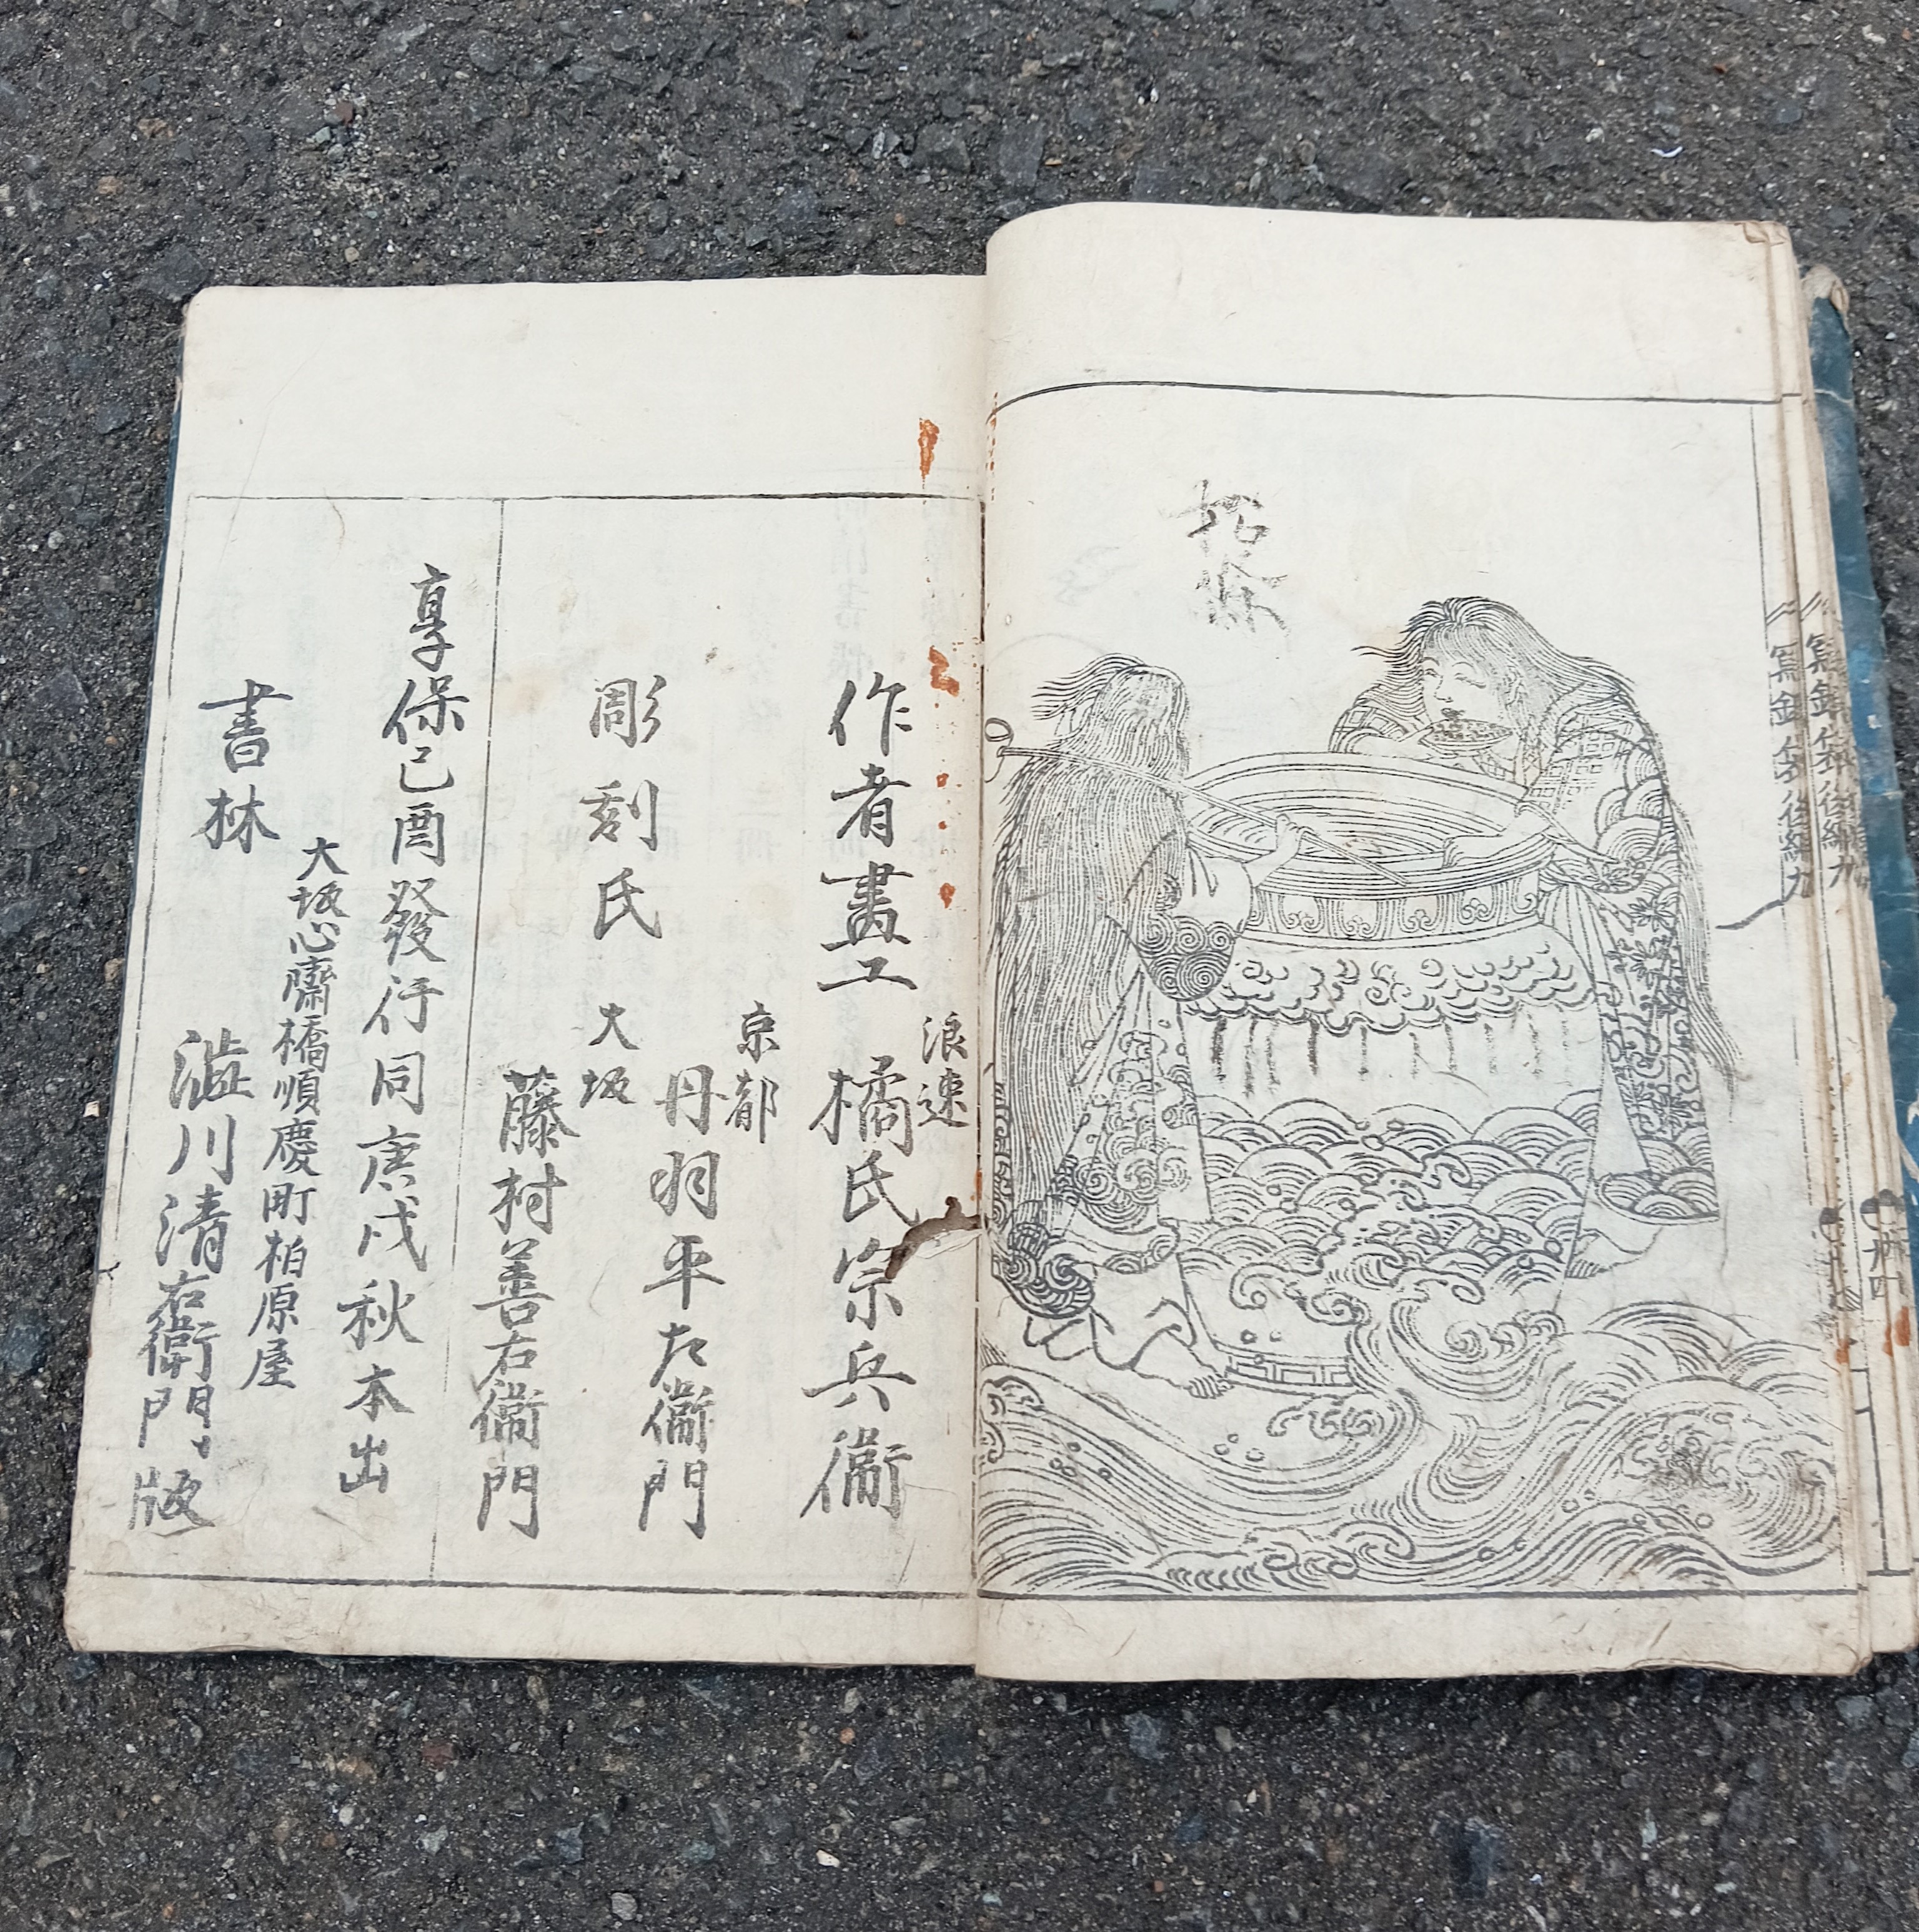 後編九
後編九
浪速
作者畫工 橘氏宗兵衛
京都
丹羽平左衛門
彫刻氏
大坂
藤村善右衛門
享保己酉發行同庚戌秋本出
大坂心齋橋順慶町柏原屋
書林 澁川清右衛門版